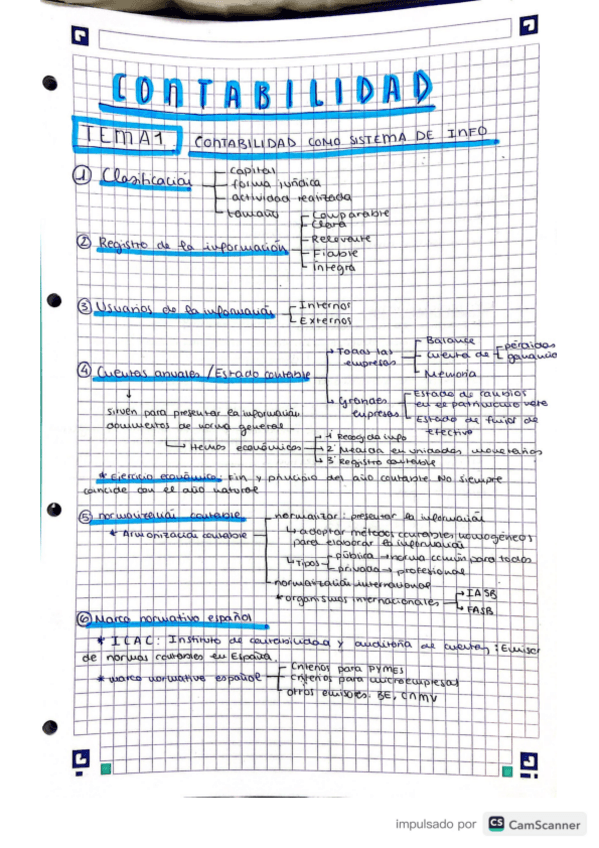 CONTABILIDAD
TEMA 1 CONTABILIDAD COMO SISTEMA DE INFO
① Clasificación
capital
forma jurídica
actividad realizada
tamaño
② Registro de la información
Comparable
Clara
Relevante
Fiable
íntegra
③ Usuarios de la información
Internos
Externos
④ Cuentas anuales / Estado contable
→ Todas las empresas
Balance
Cuenta de
pérdidas
ganancias
Memoria
→ Grandes empresas
Estado de cambios
en el patrimonio neto
Estado de flujos de
efectivo
sirven para presentar la información
documentos de norma general.
→ Hechos económicos
→ 1º Recogida info
→ 2º Medida en unidades monetarias
→ 3º Registro contable
* Ejercicio económico: Fin y principio del año contable No siempre
coincide con el año natural
⑤ normalización contable
* Armonización contable
normalizar: presentar la información
↳ adoptar métodos contables homogéneos
para elaborar la información
↳ Tipos
pública → norma común para todos
privada → profesional
normalización internacional
* organismos internacionales
→ IASB
→ FASB
⑥ Marco normativo español
* ICAC: Instituto de contabilidad y auditoría de cuentas; Emisor
de normas contables en España.
* marco normativo español
Criterios para PYMES
criterios para microempresas
otros emisores. BE, CNMV
impulsado por CS CamScanner